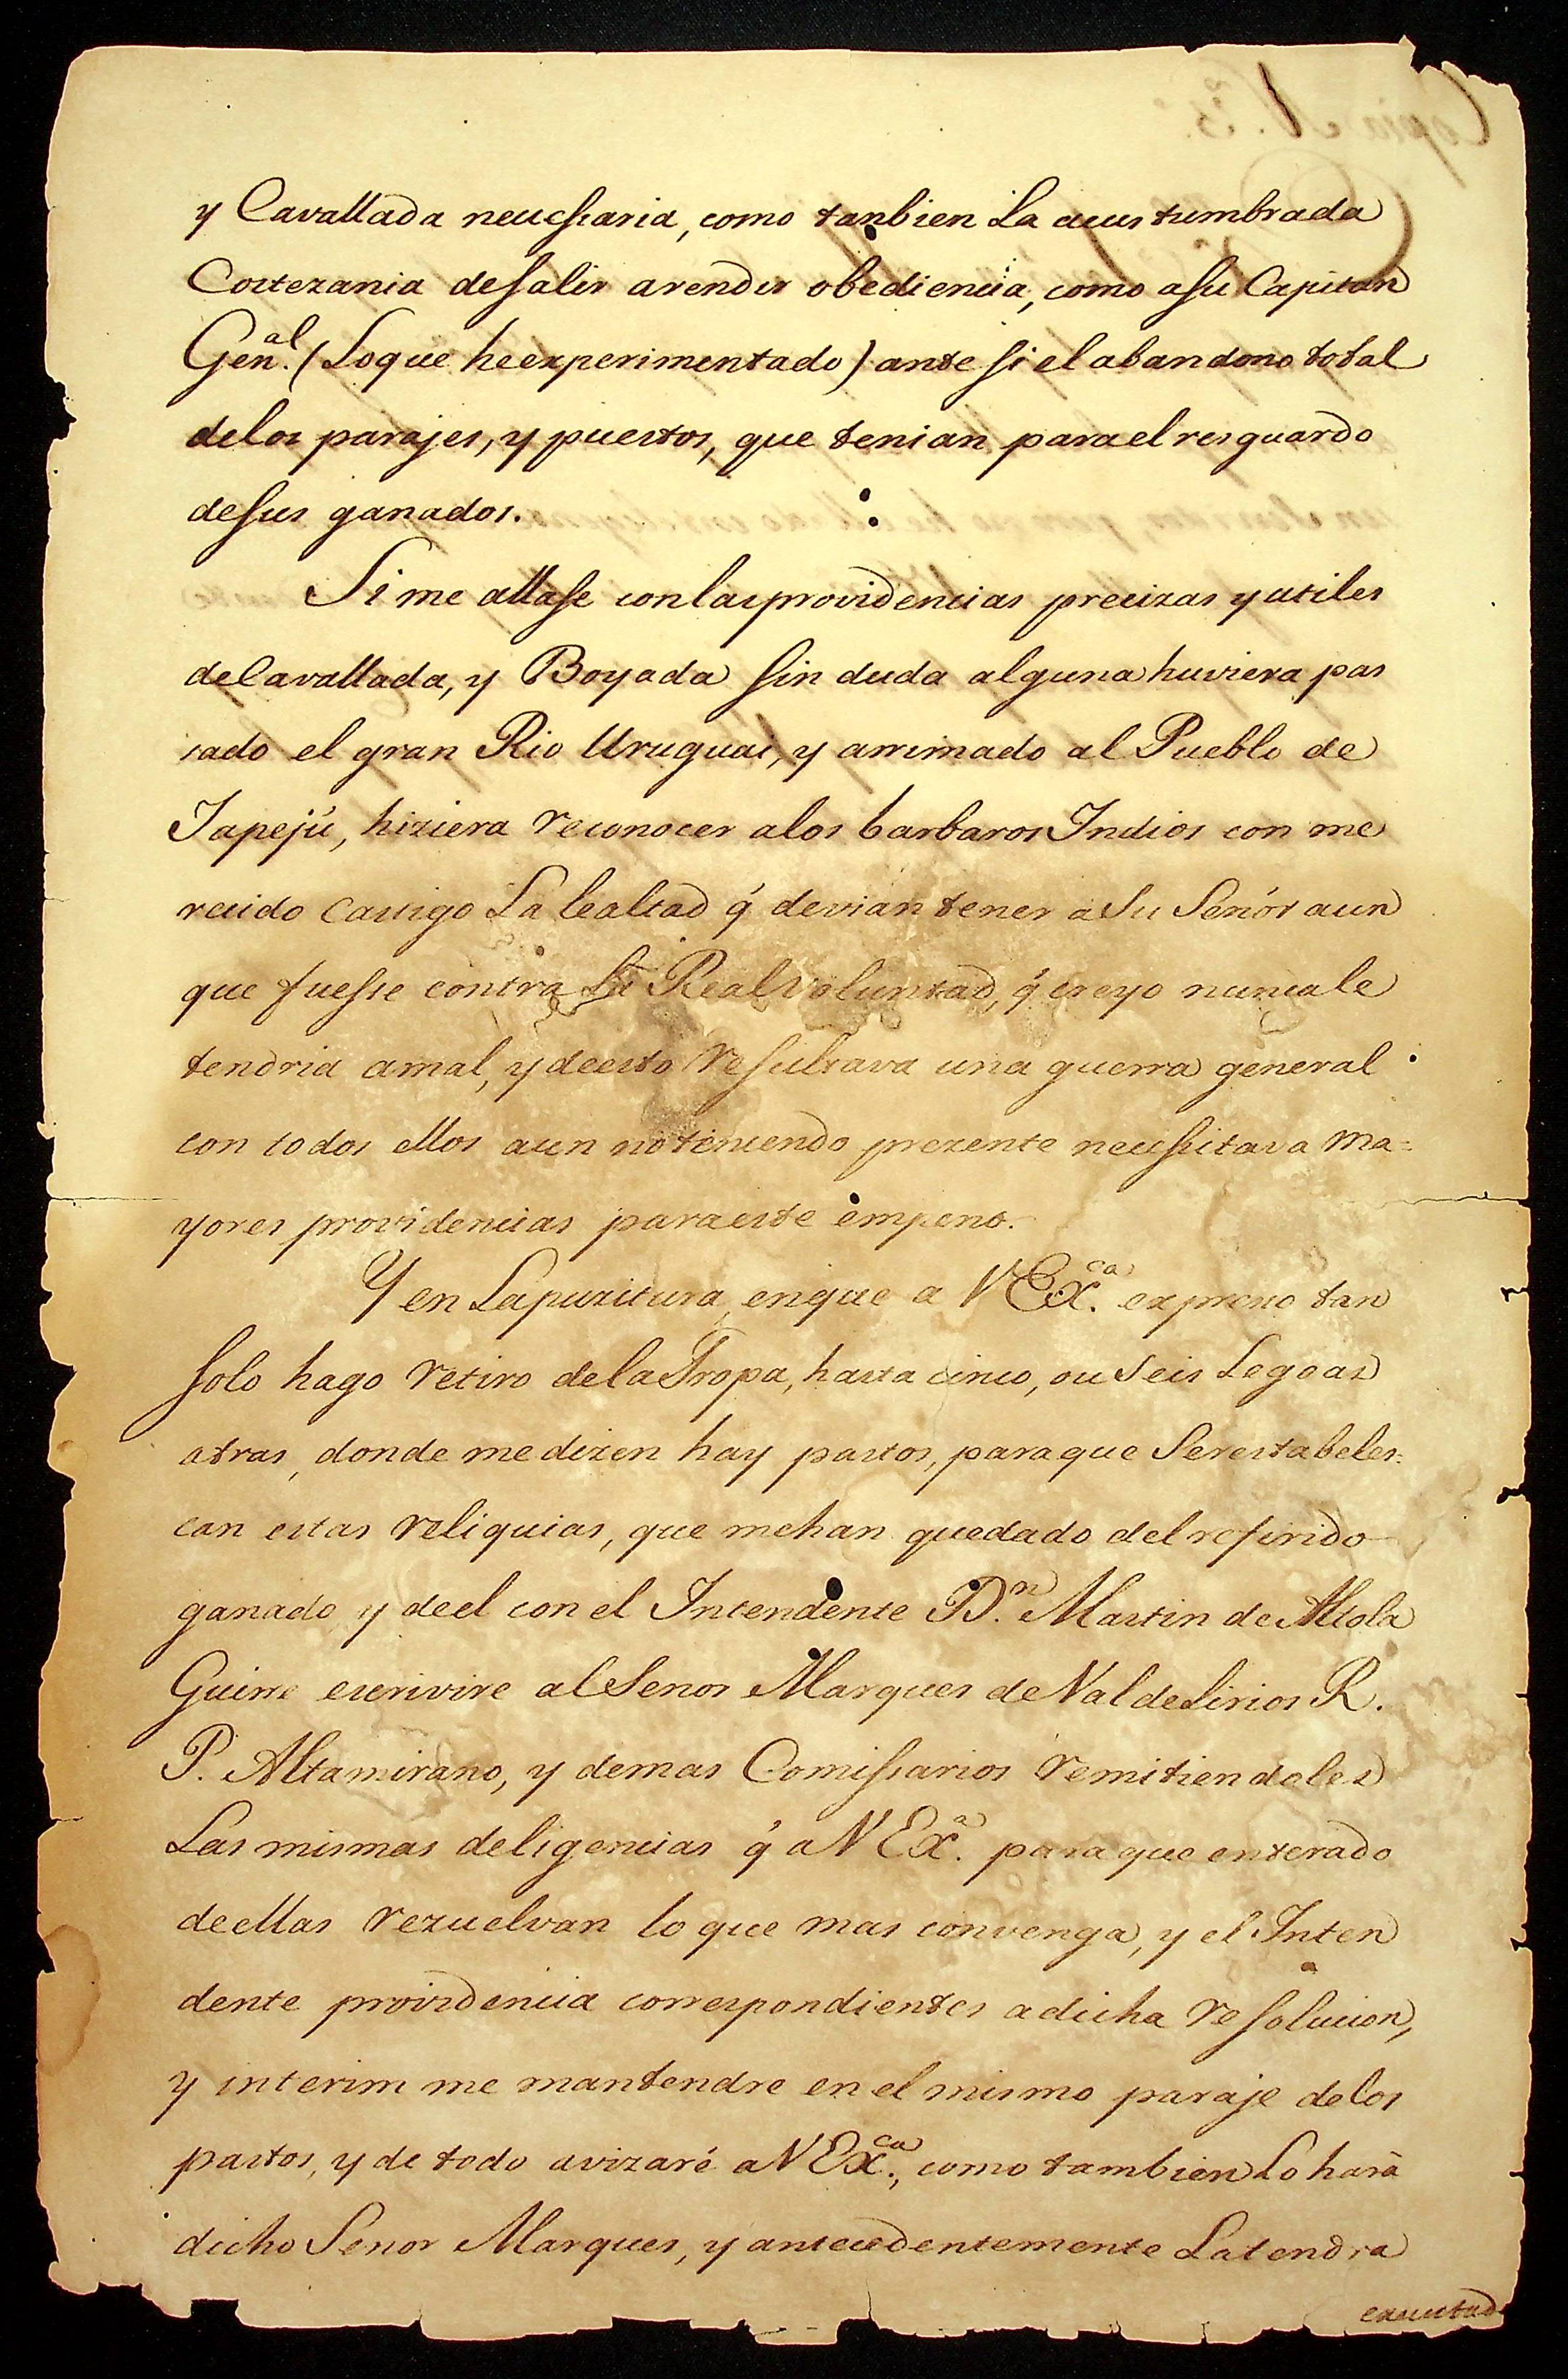 y Cavallada necessaria, como tanbien La acustumbrada
Cortezania desalir arendir obediencia, como asu Capitan
Gen.al (Loque heexperimentado) ante si el abandono total
delos parajes, y puestos, que tenian parael resguardo
desus ganados.
Si me allase conlasprovidencias precizas yutiles
deCavallada, y Boyada sin duda alguna huviera pas
sado el gran Rio Uruguai, y arrimado al Pueblo de
Japejú, hiziera reconocer alos barbaros Indios con me
recido castigo La lealtad q́ devian tener aSu Señor aun
que fuesse contra Su Real Voluntad, q́ creyo nuncale
tendria amal, ydeesto resultava una guerra general
con todos ellos aun noteniendo prezente necessitava ma=
yores providencias paraeste empeno.
Y en Lapuzitura, enque a V Ex.ca exprezo tan
solo hago retiro delaTropa, hasta cinco, ou Seis Legoas
atras, donde medizen hay pastos, paraque Serestabeles=
can estas reliquias, que mehan quedado delreferido
ganado y deel con el Intendente D.n Martin de Altola
Guirre escrivire alSenor Marques deValdeLirios R.
P. Altamirano, y demas Comissarios remitiendoles
Las mismas deligencias q́ aV Ex.a paraque enterado
deellas rezuelvan lo que mas convenga, y el Inten
dente providencia correspondientes adicha resolucion,
y interim me mantendre en el mismo paraje delos
pastos, y de todo avizaré aV Ex.ca, como tambien Lo hará
dicho Senor Marques, y antecedentemente Latendra
executad
Copia N. 3.